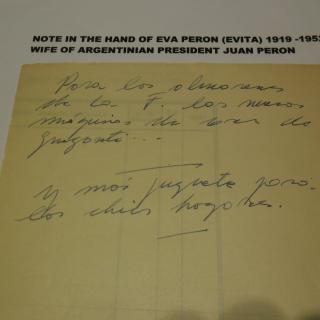 NOTE IN THE HAND OF EVA PERON (EVITA) 1919 -1953
WIFE OF ARGENTINIAN PRESIDENT JUAN PERON
Para los almacenes
de la F. las nuevas
máquinas de
y más juguete para
los hogares.